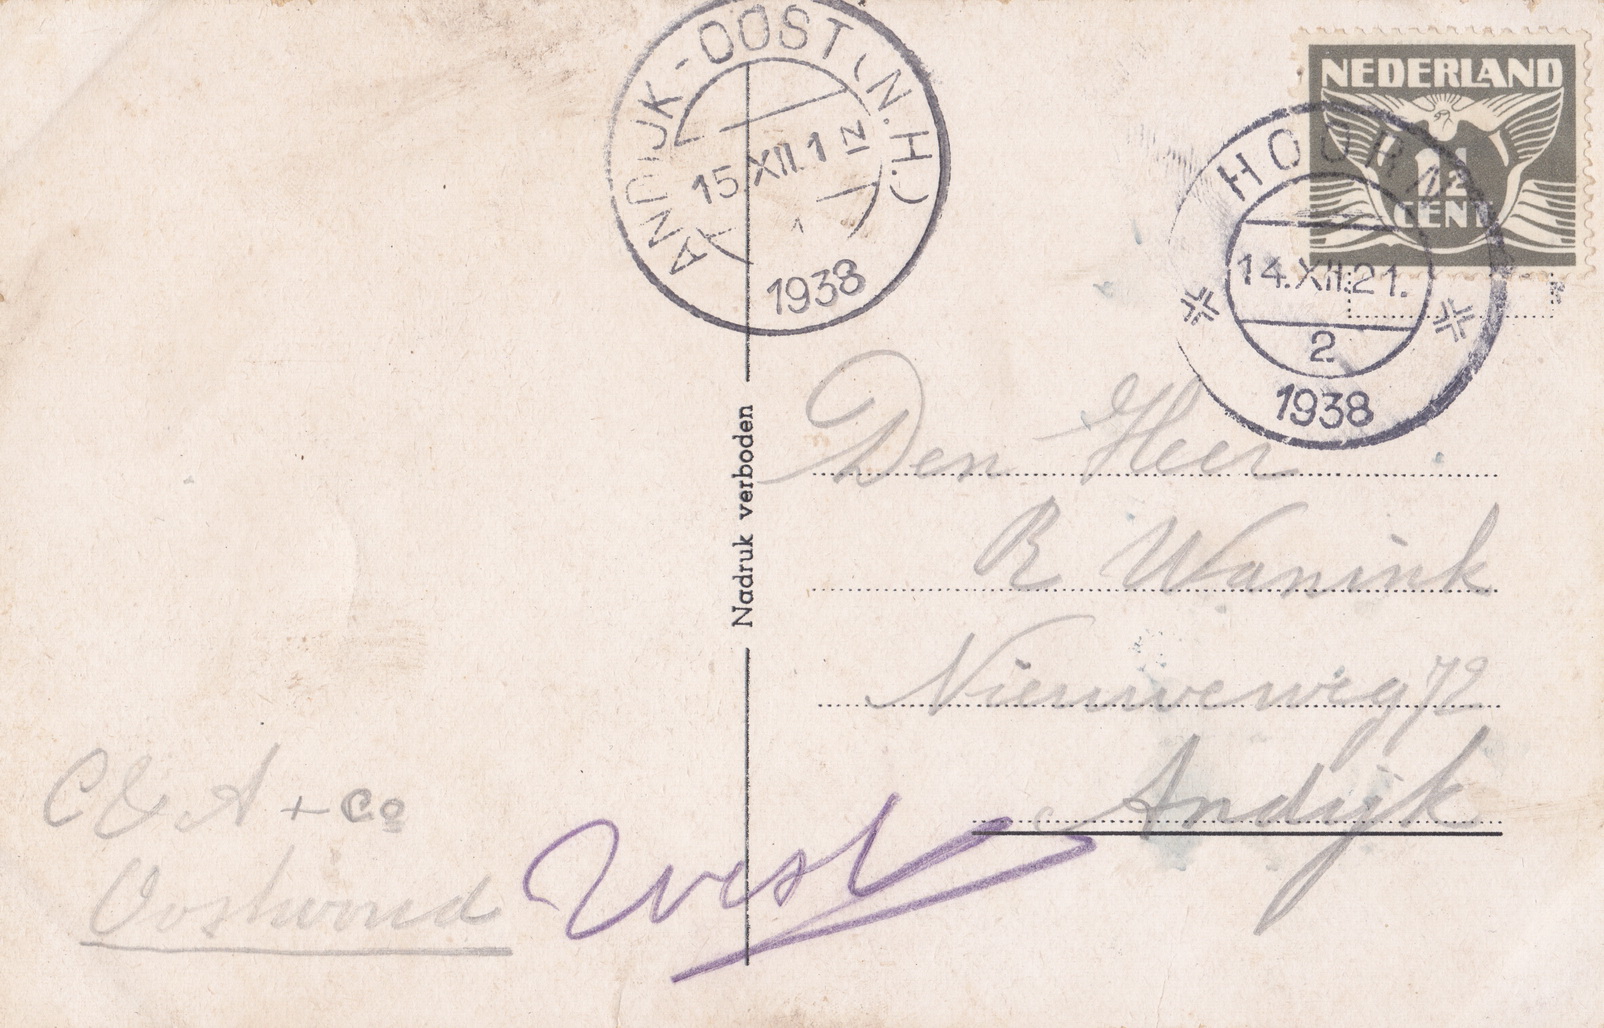 ANDIJK-OOST (N.H.)
15.XII.1
N
1
1938
NEDERLAND
1½
CENT
HOORN
14.XII.21.
2
1938
Nadruk verboden
Den Heer
R Wanink
Nieuweweg 72
Andijk
C & A + Co
Oostwoud
West